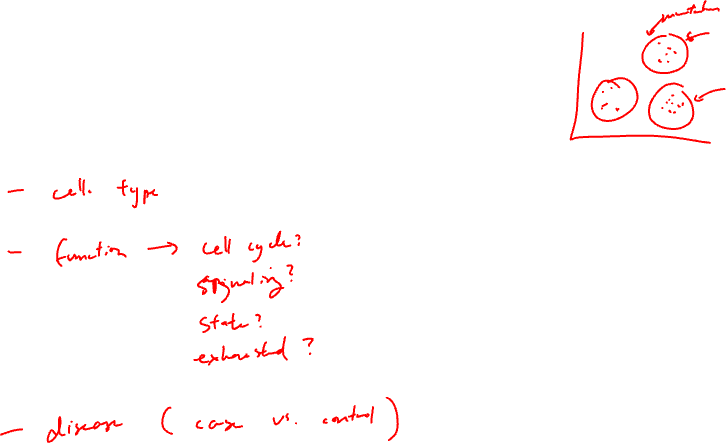 mutations
- cell type
- function → cell cycle?
signaling?
state?
exhausted?
- disease (case vs. control)